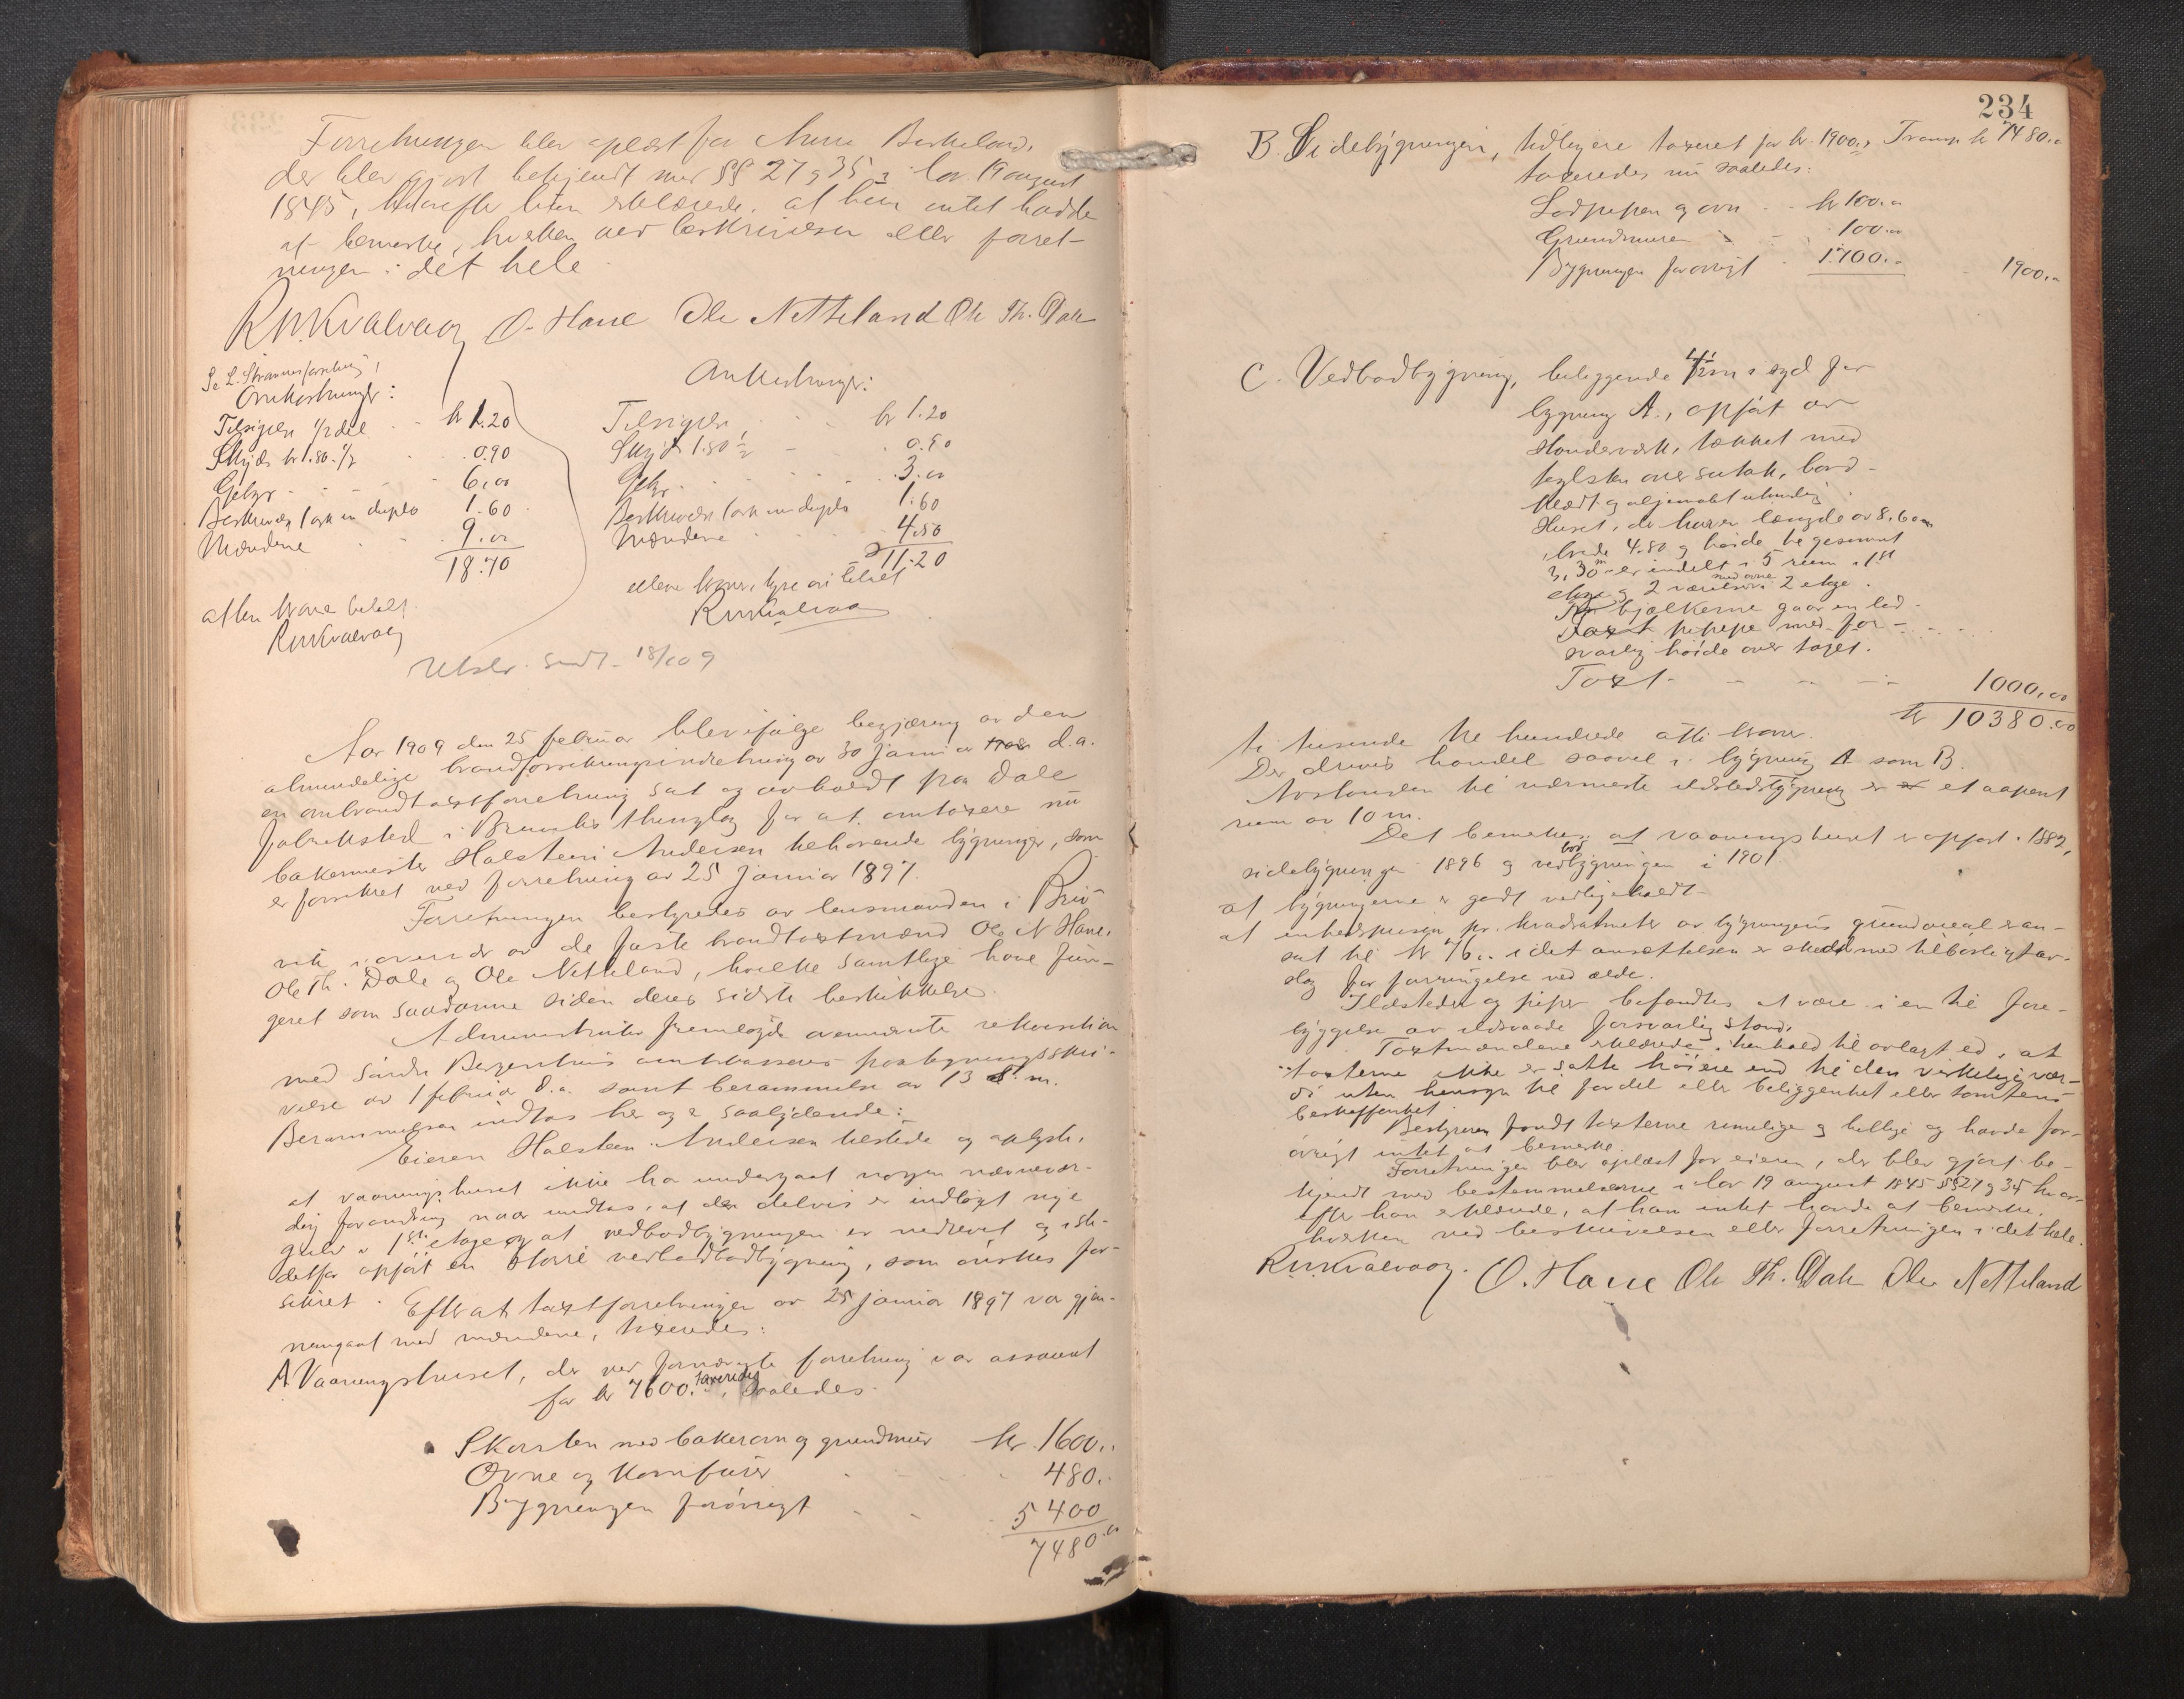 Forretningen blev oplæst for Anna Birkeland,
der blev gjort bekjendt med §§ 27 og 35 i lov 19 august
1845, hvorefter hun erklærede, at hun intet havde
at bemerke, hverken ved beskrivelsen eller forret-
ningen i det hele.
R.M.Kvalvaag O. Hane Ole Netteland Ole Th. Dale
Omkostninger:
Tilsigelse 1/2 del kr 1.20
Skyds kr 1.80. 1/2 0.90
Gebyr 6,00
Beskrivelse 1 ark in duplo 1.60
Mændene 9.00
18.70
atten kroner betalt
RMKvalvaag
Omkostninger:
Tilsigelse kr 1.20
Skyds 1.80 1/2 0.90
Gebyr 3.00
Beskrivelse 1 ark in duplo 1.60
Mændene 4.50
11.20
elleve kroner, tyve øre betalt
RMKvalvaag
Utskr. sendt 18/10 09
Aar 1909 den 25 februar blev ifølge begjæring av den
almindelige brandforsikringsindretning av 30 januar d.a.
en ombrandtaxtforretning sat og avholdt paa Dale
fabriksted i Bruviks thinglag for at omtaxere nu
bakermester Halstein Andersen tilhørende bygninger, som
er forsikret ved forretning av 25 januar 1897.
Forretningen bestyredes av lensmanden i Bru-
vik i overvær av de faste brandtaxtmænd Ole N Hane,
Ole Th. Dale og Ole Netteland, hvilke samtlige have fun-
geret som saadanne siden deres sidste beskikkelse.
Administrator fremlagde ovennævnte rekvisition
med Søndre Bergenhus amtskasseres paategningsskri-
velse av 1 februar d.a. samt berammelse av 13 d.m.
Berammelsen indtas her og er saalydende:
Eieren Halstein Andersen tilstede og oplyste,
at vaaningshuset ikke har undergaat nogen nævnevær-
dig forandring naar undtas, at der delvis er indlagt nye
gulv i 1ste etage og at vedbodbygningen er nedrevet og iste-
detfor opført en større vedbodbygning, som ønskes for-
sikret. Efterat taxtforretningen av 25 januar 1897 var gjen-
nemgaat med mændene, taxeredes:
A Vaaningshuset, der ved fornævnte forretning var assureret
for kr 7600. taxeredes saaledes
Skorsten med bakerovn og grundmur kr. 1600..
Ovne og komfurer 480.
Bygningen forøvrigt 5400
7480.00
234
B. Sidebygningen, tidligere taxeret for kr. 1900,, Transp. kr 7480..
taxeredes nu saaledes:
Ladpipen og ovn kr 100..
Grundmuren 100..
Bygningen forøvrigt 1700.. 1900..
C. Vedbodbygning, beliggende i syd for
bygning A., opført av
stenderverk, tækket med
teglsten over sutak, bord-
klædt og oljemalt utvendig.
Huset, der har en længde av 8,60 m
, brede 4.80 og høide til gesimset
3,30 m er indelt i 5 rum i 1ste
etage og 2 værelser med ovne i 2 etage.
bjælkerne gaar en lad-
pipe med for-
svarlig høide over taget.
Taxt 1000,00
kr 10380.00
ti tusende tre hundrede otti kroner.
Der drives handel saavel i bygning A som B.
Avstanden til nærmeste ildstedsbygning er et aapent
rum av 10 m.
Det bemerkes: at vaaningshuset er opført i 1882,
sidebygningen 1896 og vedbodbygningen i 1901.
at bygningerne er godt vedligeholdt
at enhedsprisen pr. kvadratmeter av bygningens grundareal er an-
sat til kr 76.. idet ansættelsen er skedd med tilbørligt av-
slag for forringelse ved ælde.
Ildsteder og piper befandtes at være i en til fore-
byggelse av ildsvaade forsvarlig stand.
Taxtmændene erklærede i henhold til avlagt ed, at
taxterne ikke er satte høiere end til den virkelige vær-
di uten hensyn til fordel eller beliggenhet eller tomtens
beskaffenhet.
Bestyreren fandt taxterne rimelige og billige og havde for-
øvrigt intet at bemerke.
Forretningen blev oplæst for eieren, der blev gjort be-
kjendt med bestemmelserne i lov 19 august 1845 §§27 og 35 hvor-
efter han erklærede, at han intet havde at bemerke,
hverken ved beskrivelsen eller forretningen i det hele.
R.M.Kvalvaag. O. Hane Ole Th. Dale Ole Netteland